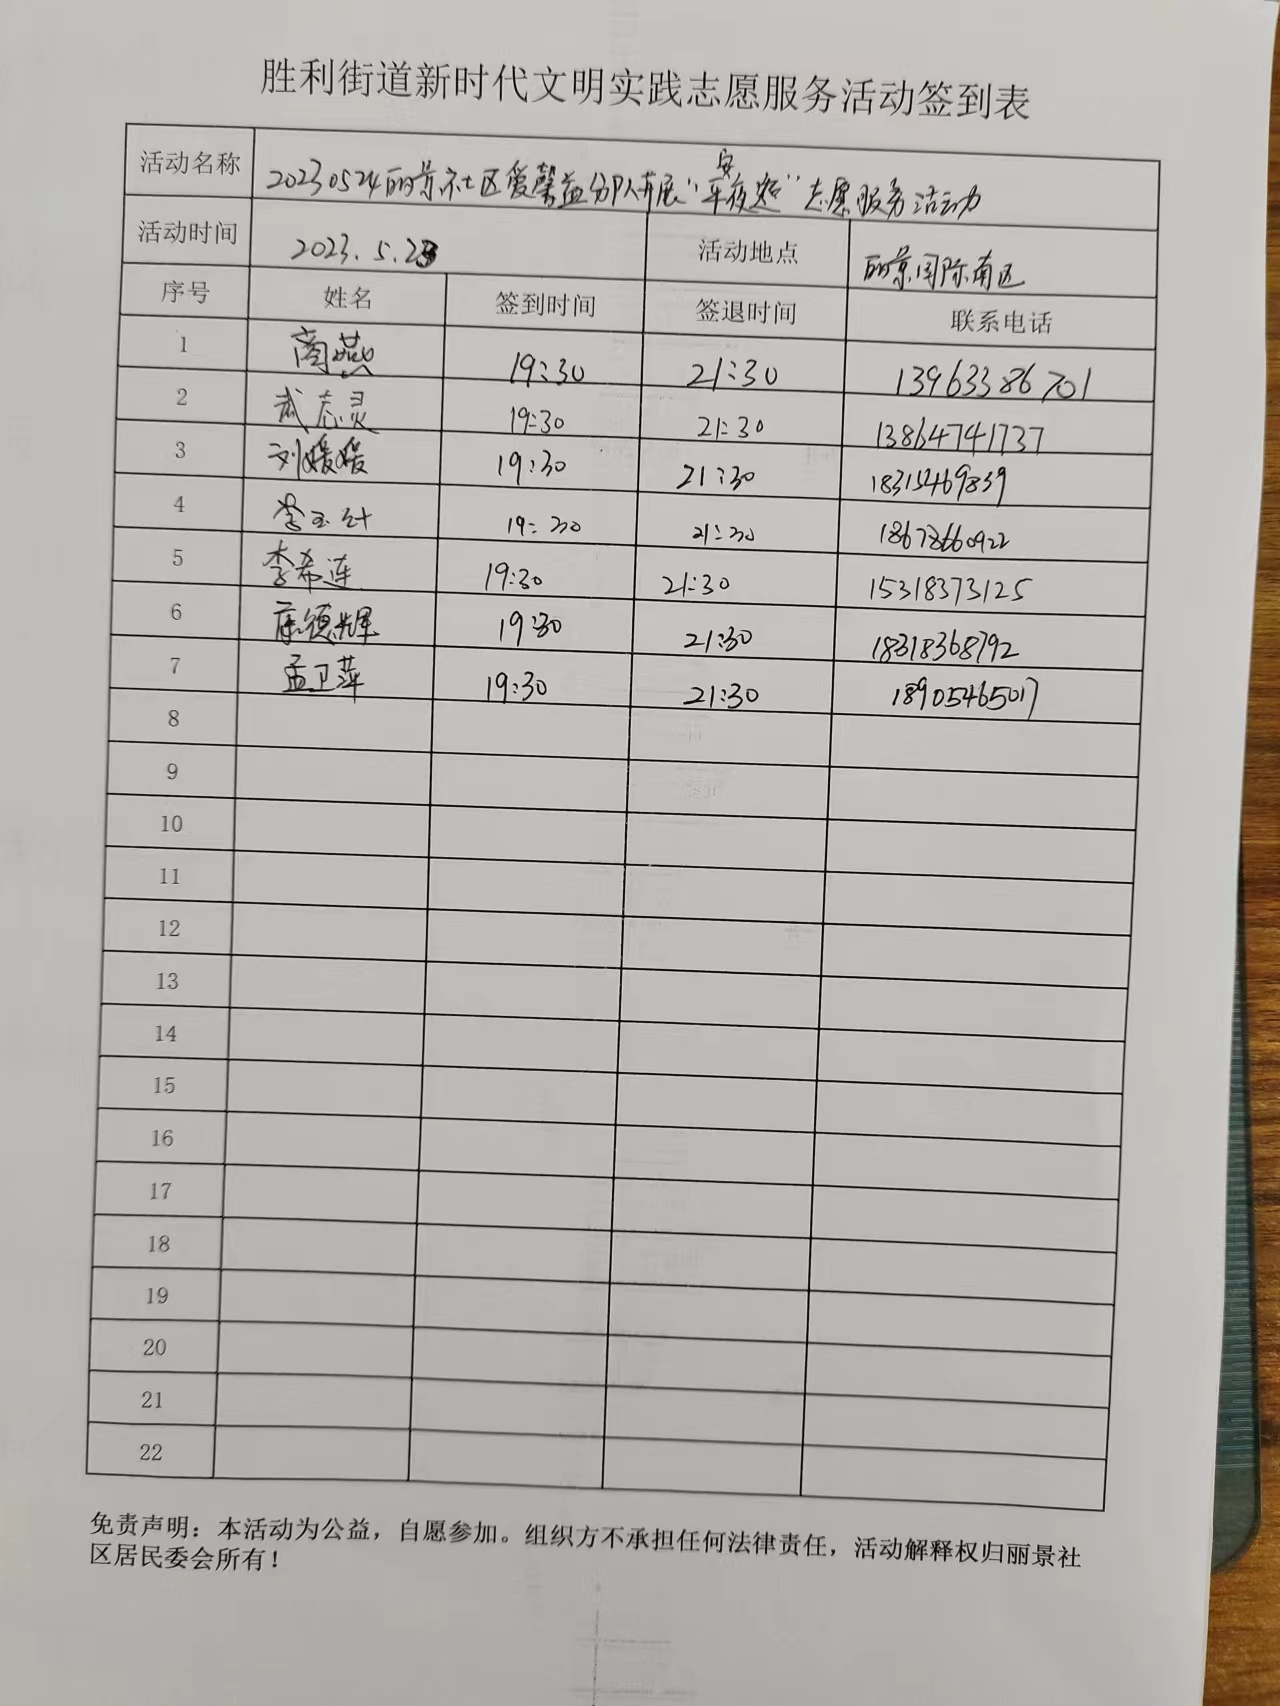 胜利街道新时代文明实践志愿服务活动签到表
活动名称 20230524丽景社区爱馨益分队开展“平安夜巡”志愿服务活动
活动时间 2023.5.23 活动地点 丽景国际南区
序号 姓名 签到时间 签退时间 联系电话
1 商燕 19:30 21:30 13963386701
2 武志灵 19:30 21:30 13864741737
3 刘媛媛 19:30 21:30 18315469839
4 19:30 21:30 18678660922
5 李希连 19:30 21:30 15318373125
6 康德辉 19:30 21:30 18318368792
7 孟卫萍 19:30 21:30 18905465017
8
9
10
11
12
13
14
15
16
17
18
19
20
21
22
免责声明：本活动为公益，自愿参加。组织方不承担任何法律责任，活动解释权归丽景社
区居民委会所有！